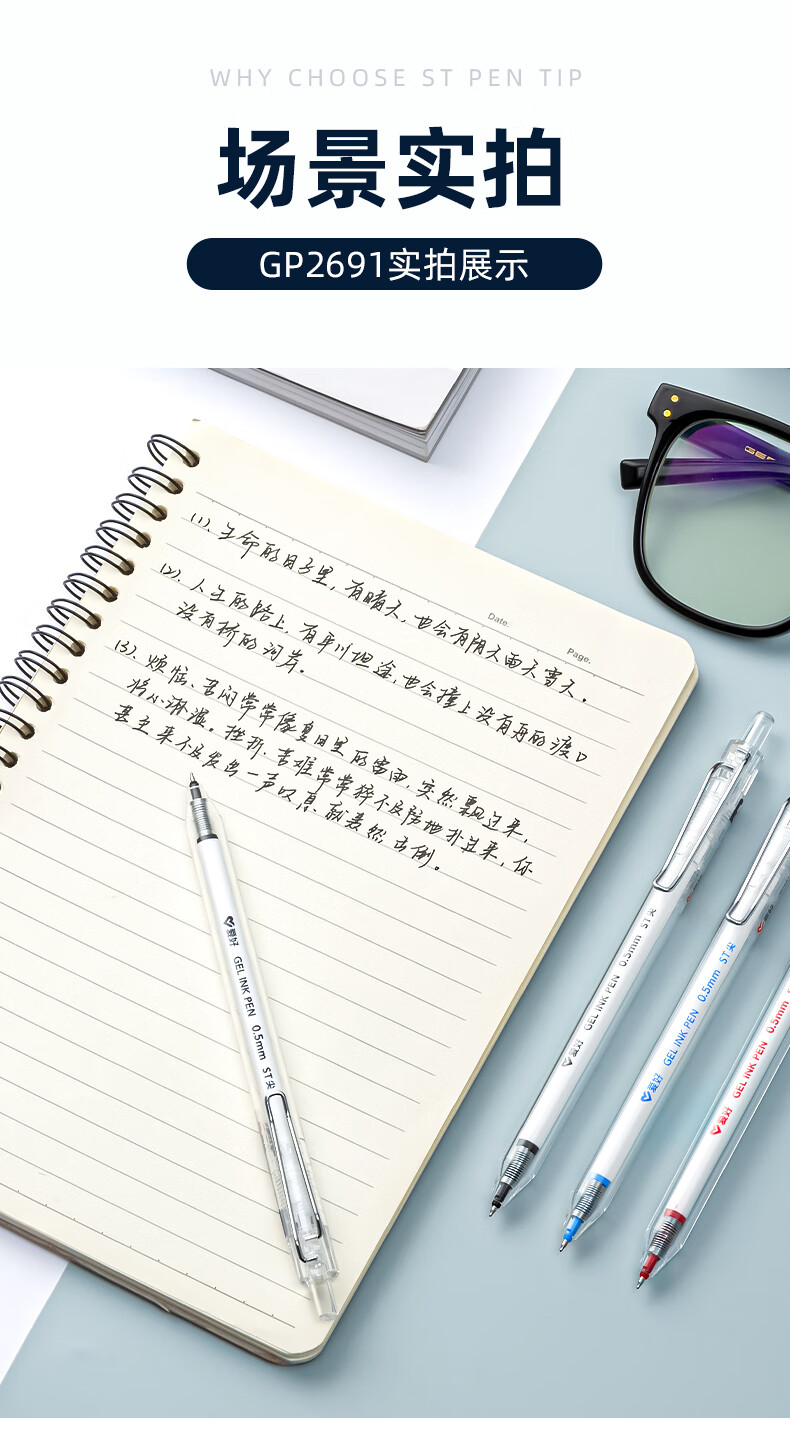 WHY CHOOSE ST PEN TIP
场景实拍
GP2691实拍展示
Date.
Page.
(1)、生命的日子里，有晴天，也会有阴天雨天雪天。
(2)、人生的路上，有平川坦途，也会撞上没有舟的渡口
没有桥的河岸。
(3)、烦恼、苦闷常常像夏日里的雷雨，突然飘过来，
将心淋湿。挫折、苦难常常猝不及防地扑过来，你
甚至来不及发出一声叹息就轰然击倒。
爱好 GEL INK PEN 0.5mm ST尖
爱好 GEL INK PEN 0.5mm ST尖
爱好 GEL INK PEN 0.5mm ST尖
爱好 GEL INK PEN 0.5mm